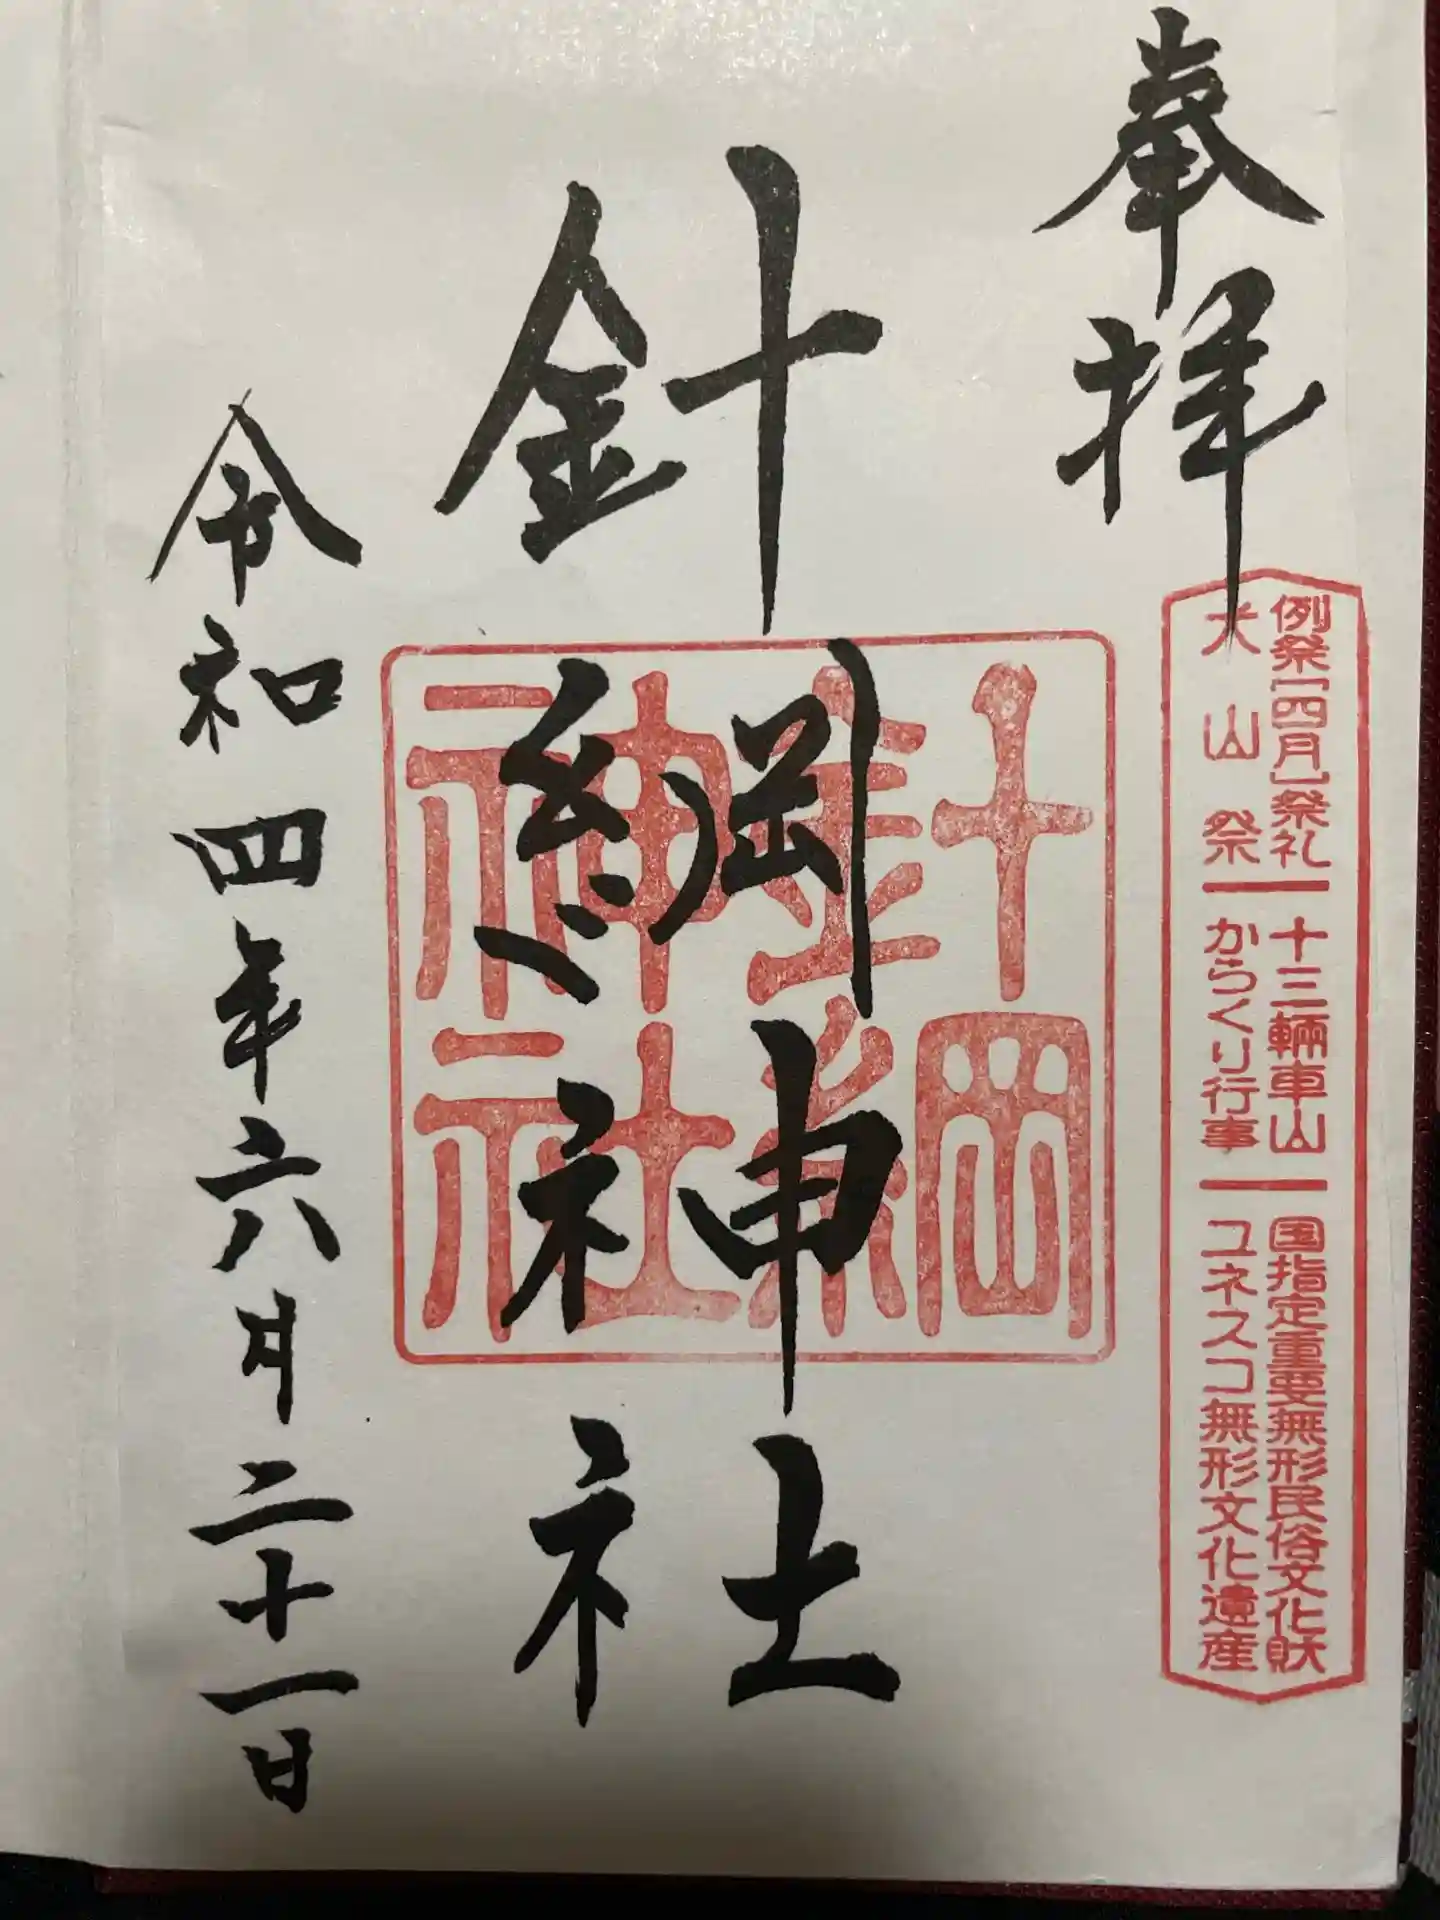 奉拝
例祭[四月]祭礼ー十三輌車山ー国指定重要無形民俗文化財
犬山祭ーからくり行事ーユネスコ無形文化遺産
針綱神社
針綱神社
令和四年六月二十一日